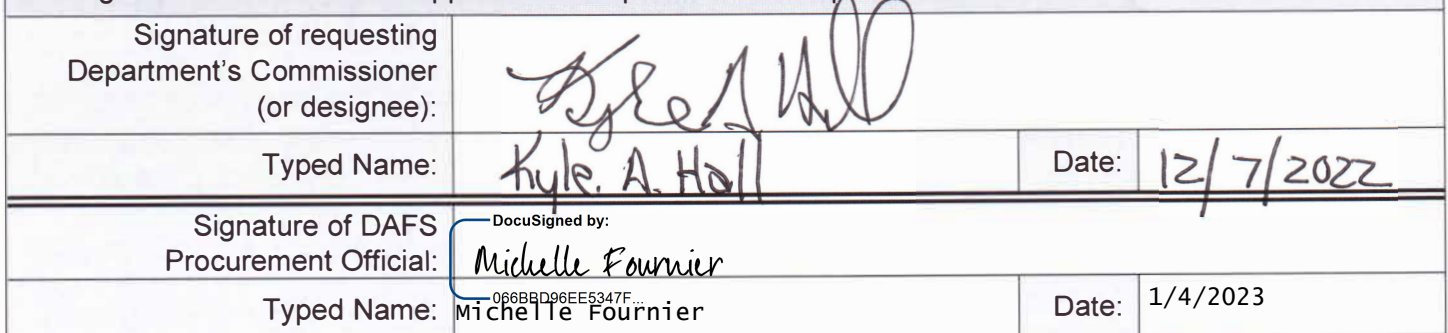 Signature of requesting
Department's Commissioner
(or designee):
Kyle A Hall
Typed Name: Kyle. A. Hall Date: 12/7/2022
Signature of DAFS
Procurement Official:
DocuSigned by:
Michelle Fournier
066BBD96EE5347F...
Typed Name: Michelle Fournier Date: 1/4/2023